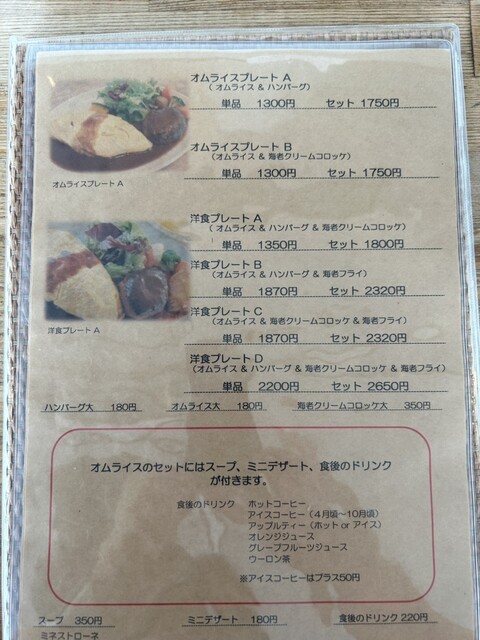 オムライスプレート A
( オムライス & ハンバーグ)
単品 1300円 セット 1750円
オムライスプレート B
(オムライス & 海老クリームコロッケ)
単品 1300円 セット 1750円
オムライスプレート A
洋食プレート A
( オムライス & ハンバーグ & 海老クリームコロッケ)
単品 1350円 セット 1800円
洋食プレート B
(オムライス & ハンバーグ & 海老フライ)
単品 1870円 セット 2320円
洋食プレート C
(オムライス & 海老クリームコロッケ & 海老フライ)
単品 1870円 セット 2320円
洋食プレート A
洋食プレート D
(オムライス & ハンバーグ & 海老クリームコロッケ & 海老フライ)
単品 2200円 セット 2650円
ハンバーグ大 180円 オムライス大 180円 海老クリームコロッケ大 350円
オムライスのセットにはスープ、ミニデザート、食後のドリンク
が付きます。
食後のドリンク ホットコーヒー
アイスコーヒー（4月頃～10月頃）
アップルティー（ホット or アイス）
オレンジジュース
グレープフルーツジュース
ウーロン茶
※アイスコーヒーはプラス50円
スープ 350円 ミニデザート 180円 食後のドリンク 220円
ミネストローネ